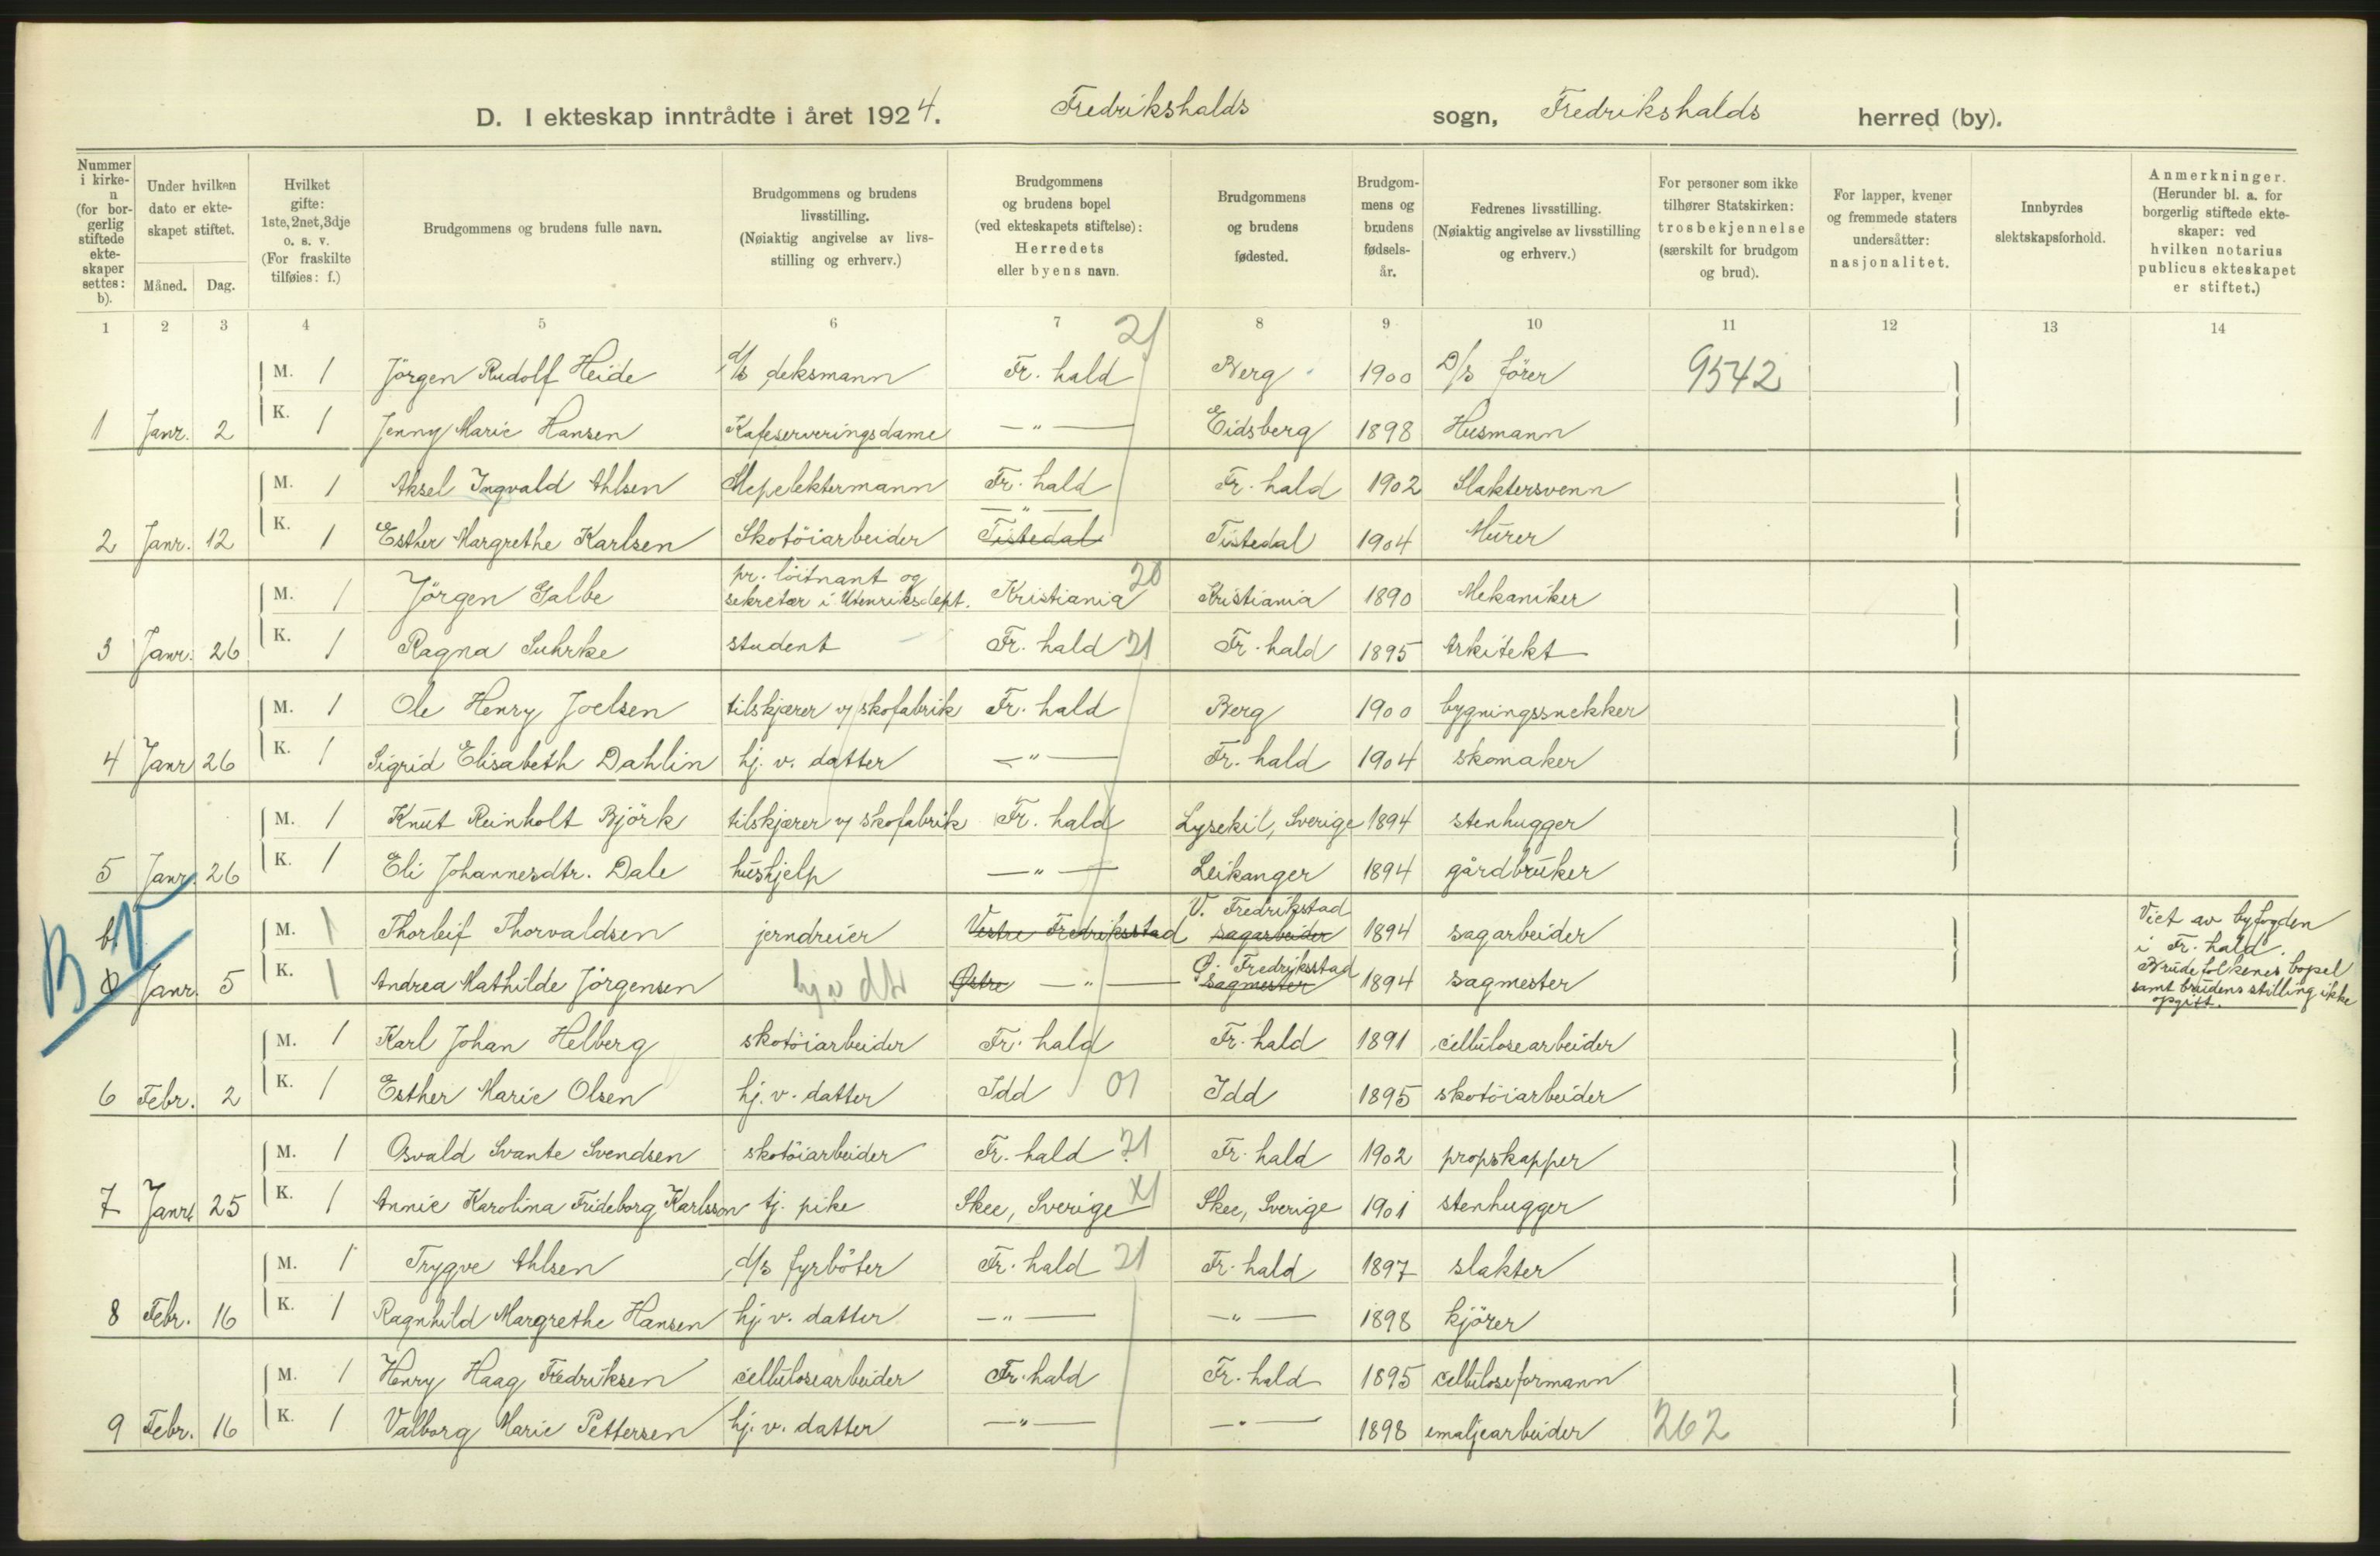 D. I ekteskap inntrådte i året 1924. Fredrikshalds sogn, Fredrikshalds herred (by).
Nummer i kirke-n (for bor-gerlig stiftede ekte-skaper settes: b).
Under hvilken dato er ekte-skapet stiftet.
Måned. Dag.
Hvilket gifte: 1ste, 2net, 3dje o. s. v. (For fraskilte tilføies: f.)
Brudgommens og brudens fulle navn.
Brudgommens og brudens livsstilling. (Nøiaktig angivelse av livs-stilling og erhverv.)
Brudgommens og brudens bopel (ved ekteskapets stiftelse): Herredets eller byens navn.
Brudgommens og brudens fødested.
Brudgom-mens og brudens fødsels-år.
Fedrenes livsstilling. (Nøiaktig angivelse av livsstilling og erhverv.)
For personer som ikke tilhører Statskirken: trosbekjennelse (særskilt for brudgom og brud).
For lapper, kvener og fremmede staters undersåtter: nasjonalitet.
Innbyrdes slektskapsforhold.
Anmerkninger. (Herunder bl. a. for borgerlig stiftede ekte-skaper: ved hvilken notarius publicus ekteskapet er stiftet.)
1 2 3 4 5 6 7 8 9 10 11 12 13 14
21
M. 1 Jörgen Rudolf Heide d/s deksmann Fr. hald Berg 1900 D/s förer 9542
1 Janr. 2 K. 1 Jenny Marie Hansen Kafeserveringsdame —"— Eidsberg 1898 Husmann
M. 1 Aksel Ingvald Ahlsen Slepelektermann Fr. hald Fr. hald 1902 Slaktersvenn
—"—
2 Janr. 12 K. 1 Esther Margrethe Karlsen Skotöiarbeider Tistedal Tistedal 1904 Murer
pr. löitnant og 20
M. 1 Jörgen Galbe sekretær i Utenriksdept. Kristiania Kristiania 1890 Mekaniker
3 Janr. 26 K. 1 Ragna Suhrke student Fr. hald 21 Fr. hald 1895 Arkitekt
M. 1 Ole Henry Joelsen tilskjærer v/ skofabrik Fr. hald Berg 1900 bygningssnekker
4 Janr 26 K. 1 Sigrid Elisabeth Dahlin hj. v. datter —"— Fr. hald 1904 skomaker
M. 1 Knut Reinholt Björk tilskjærer v/ skofabrik Fr. hald Lysekil, Sverige 1894 stenhugger
5 Janr. 26 K. 1 Eli Johannesdtr. Dale hushjelp —"— Leikanger 1894 gårdbruker
V. Fredrikstad
B V b1 M. 1 Thorleif Thorvaldsen jerndreier Vestre Fredriksstad sagarbeider 1894 sagarbeider
Viet av byfogden
i Fr. hald.
Ø. Fredriksstad
Janr. 5 K. 1 Andrea Mathilde Jörgensen hj v dtr Østre —"— sagmester 1894 sagmester
Brudefolkenes bopel
samt brudens stilling ikke
opgitt.
M. 1 Karl Johan Helberg skotöiarbeider Fr. hald Fr. hald 1891 cellulosearbeider
6 Febr. 2 K. 1 Esther Marie Olsen hj. v. datter Idd 01 Idd 1895 skotöiarbeider
M. 1 Osvald Svante Svendsen skotöiarbeider Fr. hald 21 Fr. hald 1902 propskapper
7 Janr. 25 K. 1 Annie Karolina Frideborg Karlsson tj. pike Skee, Sverige X1 Skee, Sverige 1901 stenhugger
M. 1 Trygve Ahlsen d/s fyrböter Fr. hald 21 Fr. hald 1897 slakter
8 Febr. 16 K. 1 Ragnhild Margrethe Hansen hj. v. datter —"— —"— 1898 kjörer
M. 1 Henry Haag Fredriksen cellulosearbeider Fr. hald Fr. hald 1895 celluloseformann
9 Febr. 16 K. 1 Valborg Marie Pettersen hj. v. datter —"— —"— 1898 emaljearbeider 262